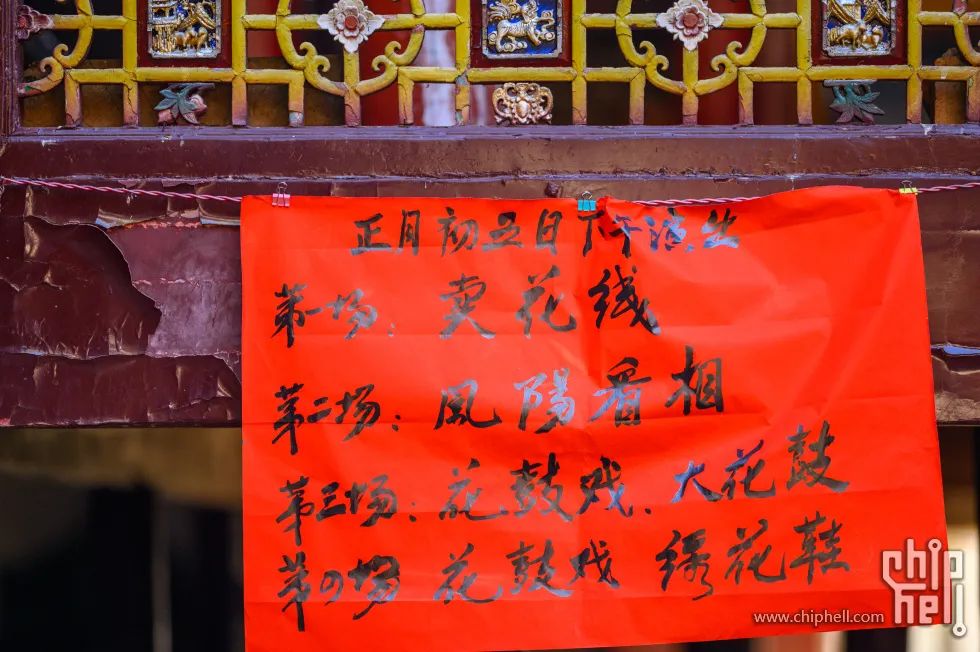 正月初五日下午演出
第一场：卖花线
第二场：凤陽看相
第三场：花鼓戏、大花鼓
第四场 花鼓戏 绣花鞋
chip hell
www.chiphell.com